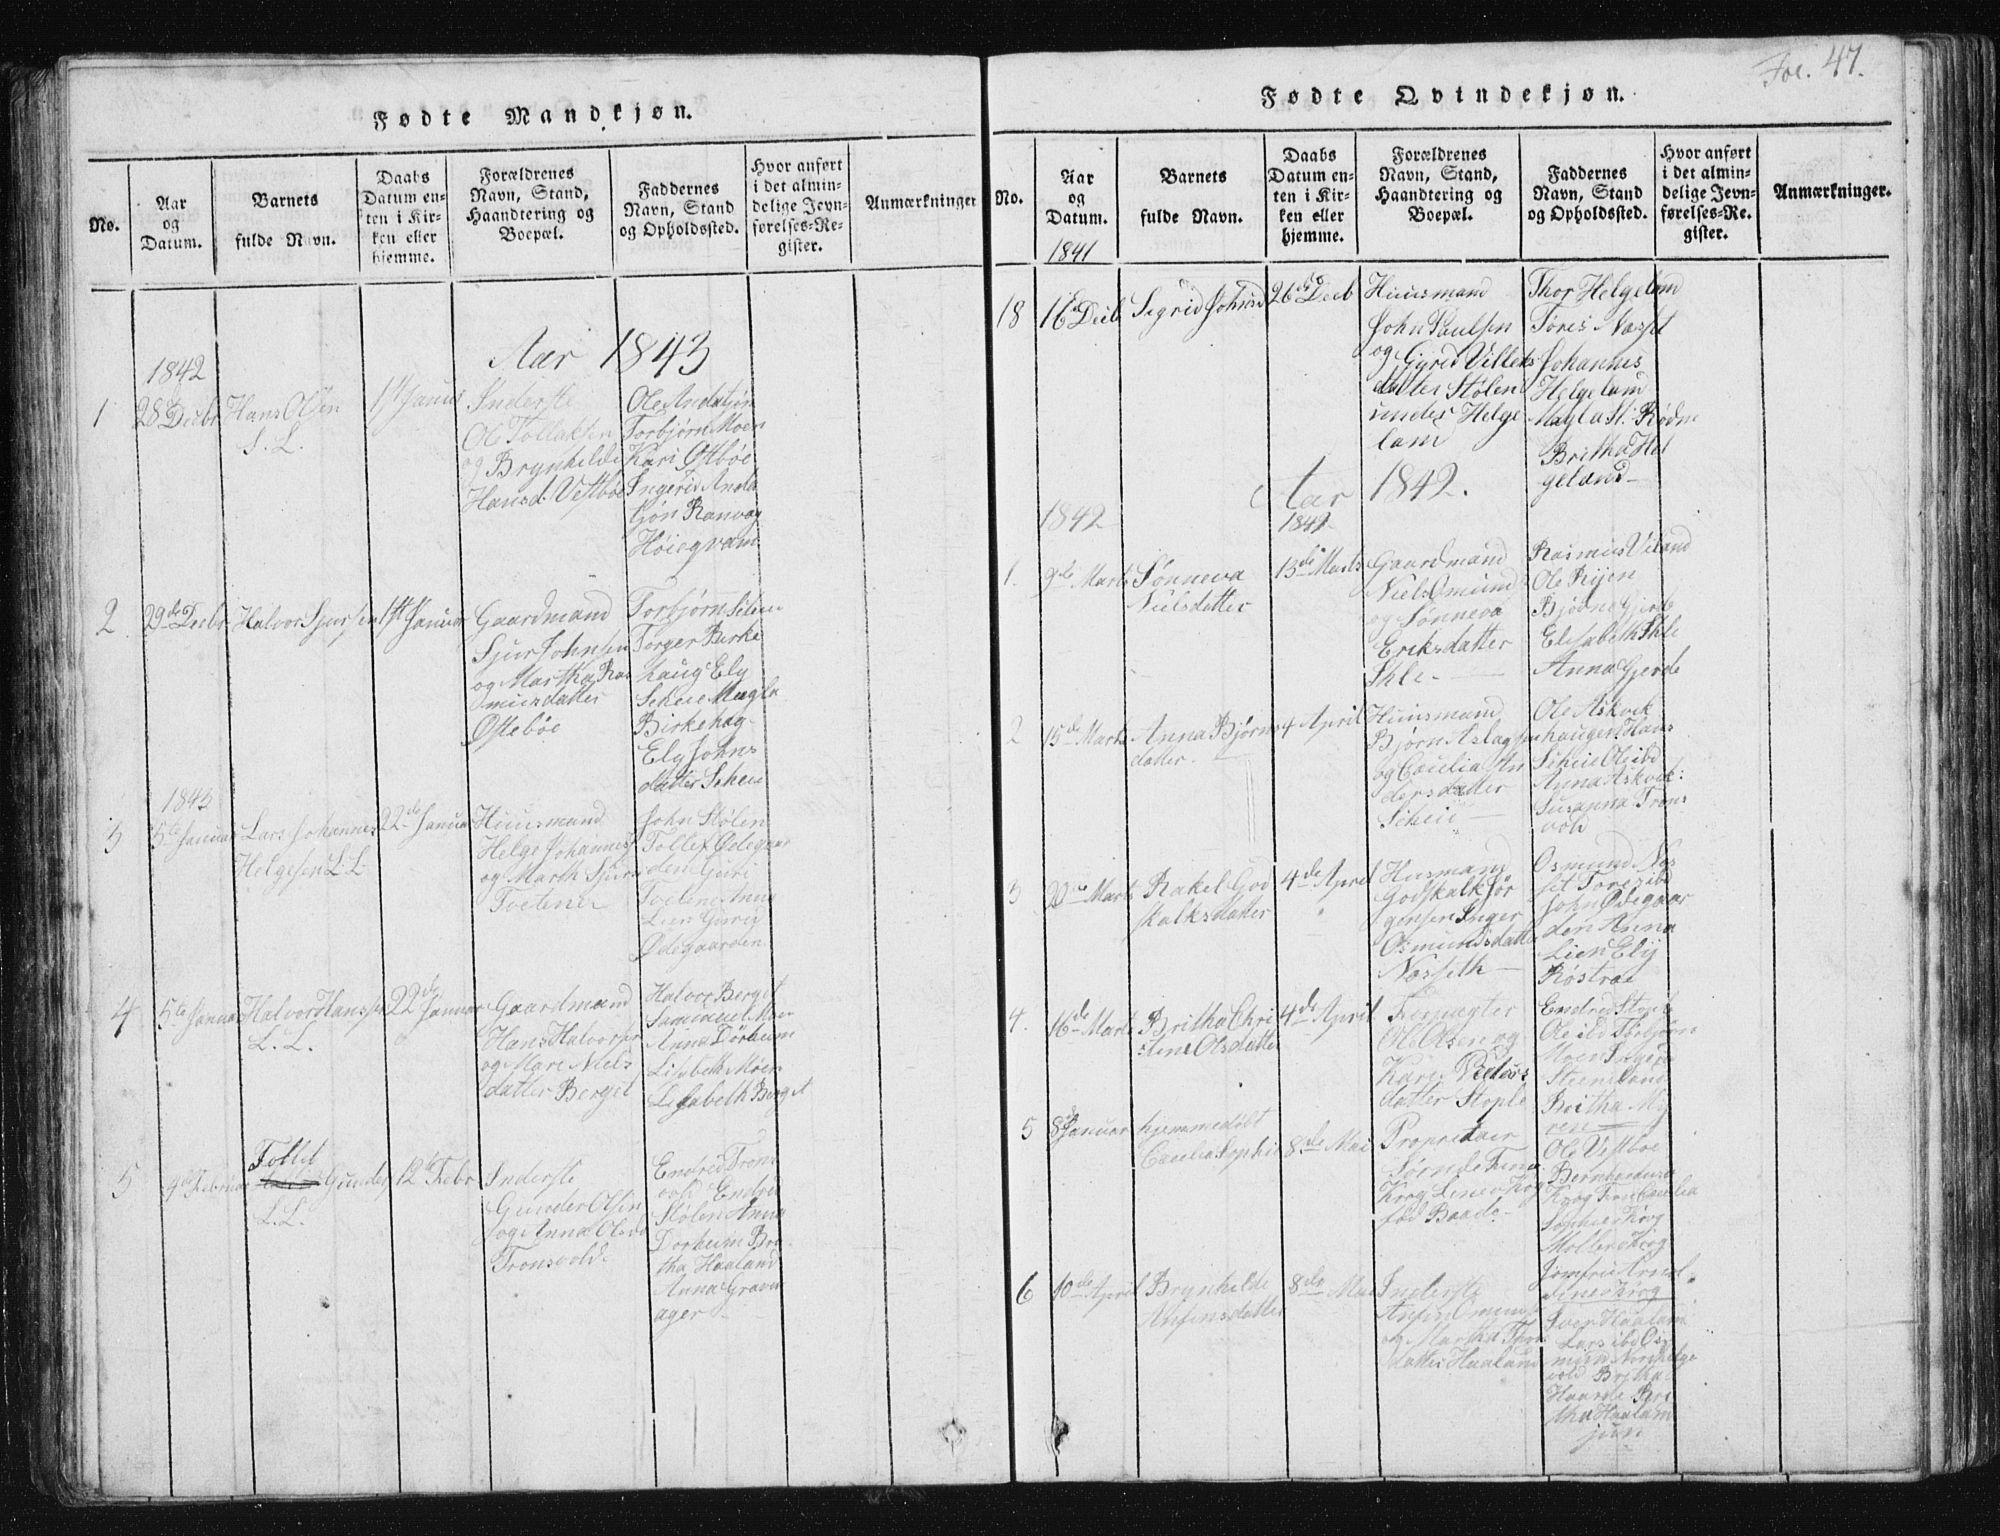 Fødte Mandkjøn.
No.
Aar
og
Datum.
Barnets
fulde Navn.
Daabs
Datum en-
ten i Kir-
ken eller
hjemme.
Forældrenes
Navn, Stand,
Haandtering og
Boepæl.
Faddernes
Navn, Stand
og Opholdssted.
Hvor anført
i det almin-
delige Jevn-
førelses-Re-
gister.
Anmærkninger
Aar 1843
1842
1
28 Decbr
Hans Olsen
L. L.
1st Januar
Inderste
Ole Tollaksen
og Brynhilde
Hansd. Vestbøe
Ole
Torbjørn Moen
Kari Østbøe
Ingerid
Ranvag
Høiegvam
2
29de Decbr
Halvor Sjursen
1st Januar
Gaardmand
Sjur Johnsen
og Martha Ras
musdatter
Østebøe
Torbjørn
Torger Birke
haug Ely
Scheie Magla
Birkehag
Ely Johns
datter Scheie
1843
3
5te Januar
Lars Johannes
Helgesen L. L.
22de Januar
Huusmand
Helge Johannes
og Marth Sjurs
John Stølen
Tollef Ødegaar
den Guri
Anna
Lien
Ødegaarden
4
5te Januar
Halvor Hansen
L. L.
22de Januar
Gaardmand
Hans Halvorsen
og Mare Niels
datter Berget
Halvor Berget
Anna Dørheim
Lisbeth Moen
Lisabeth Berget
5
9de Februar
Tollef
Gunder
L. L.
12te Febr
Inderste
Gunder Olsen
og Anna Olsd
Tronsvold
Endred Trons
vold Endre
Stølen Anna
Dorheim Bri
tha Haaland
Anna Graven
ager
Fol. 47.
Fødte Qvindekjøn.
No.
Aar
og
Datum.
1841
Barnets
fulde Navn.
Daabs
Datum en-
ten i Kir-
ken eller
hjemme.
Forældrenes
Navn, Stand,
Haandtering og
Boepæl.
Faddernes
Navn, Stand
og Opholdssted.
Hvor anført
i det almin-
delige Jevn-
førelses-Re-
gister.
Anmærkninger.
18
16de Decb
Sigrid Johnsd
26de Decb
Huusmand
John Paulsen
og Gyrid Villeks
datter Stølen
under Helge
lam
Thor Helgeland
Tores Næsset
Johannes
Helgeland
Magla St: Rødne
Britha Hel
geland
Aar 1842.
1842
1842
1.
9de Marts
Sønneva
Nielsdatter
13de Marts
Gaardmand
Niels Omund
og Sønneva
Eriksdatter
Skle
Rasmus Viland
Ole Rijen
Bjødne Gjerde
Elisabeth Skle
Anna Gjerde
2
15de Marts
Anna Bjørns
datter
4 April
Huusmand
Bjørn Aslagsen
og Cecelia An
dersdatter
Scheie
Ole Askvik
haugen Hans
Scheie Ole ibd
Anna Askvik:
Susanna Trons
vold
3
20de Marts
Rakel God
skalksdatter
4de April
Husmand
Godskalk Jør
gensen Inger
Osmundsdatter
Næsseth
Osmund Næs
set Tores ibd
John Ødegaar
den Anna
Lien Elij
Røstrae
4.
16de Marts
Britha Chri
stine Olsdatter
4de April
Ole Olsen og
Kari Peders
datter Stople
Endred Stople
Ole ibd Torbjørn
Moen
Steensland
Britha My
ren
5
8de Januar
hjemmedøbt
Cecelia Sophie
8de Mai
Proprietair
Sørn de Fine
Krog Lene Krog
fød Baade
Ole Vestbøe
Krog Cecelia
Sophie Krog
Krog
Jomfrue
Krog
6
10de April
Brynhilde
Anfinsdatter
8de Mai
Inderste
Anfin Omunds
og Martha
datter Haaland
Iver Haaland
Lars ibd Os
mund Norhelge
vold Britha
Haarde Bri
tha Haaland
jun